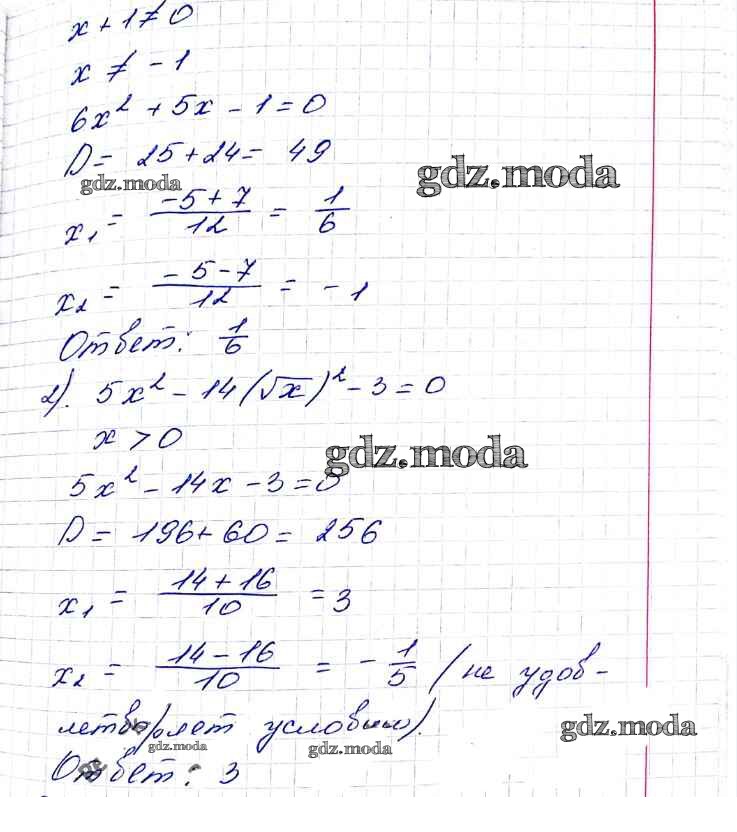 x + 1 ≠ 0
x ≠ - 1
6x² + 5x - 1 = 0
D = 25 + 24 = 49
gdz.moda
gdz.moda
x₁ = (-5 + 7)/12 = 1/6
x₂ = (-5 - 7)/12 = - 1
Ответ: 1/6
2). 5x² - 14(√x)² - 3 = 0
x > 0
gdz.moda
5x² - 14x - 3 = 0
D = 196 + 60 = 256
x₁ = (14 + 16)/10 = 3
x₂ = (14 - 16)/10 = - 1/5 (не удов-
летворяет условию).
gdz.moda
gdz.moda
gdz.moda
Ответ: 3